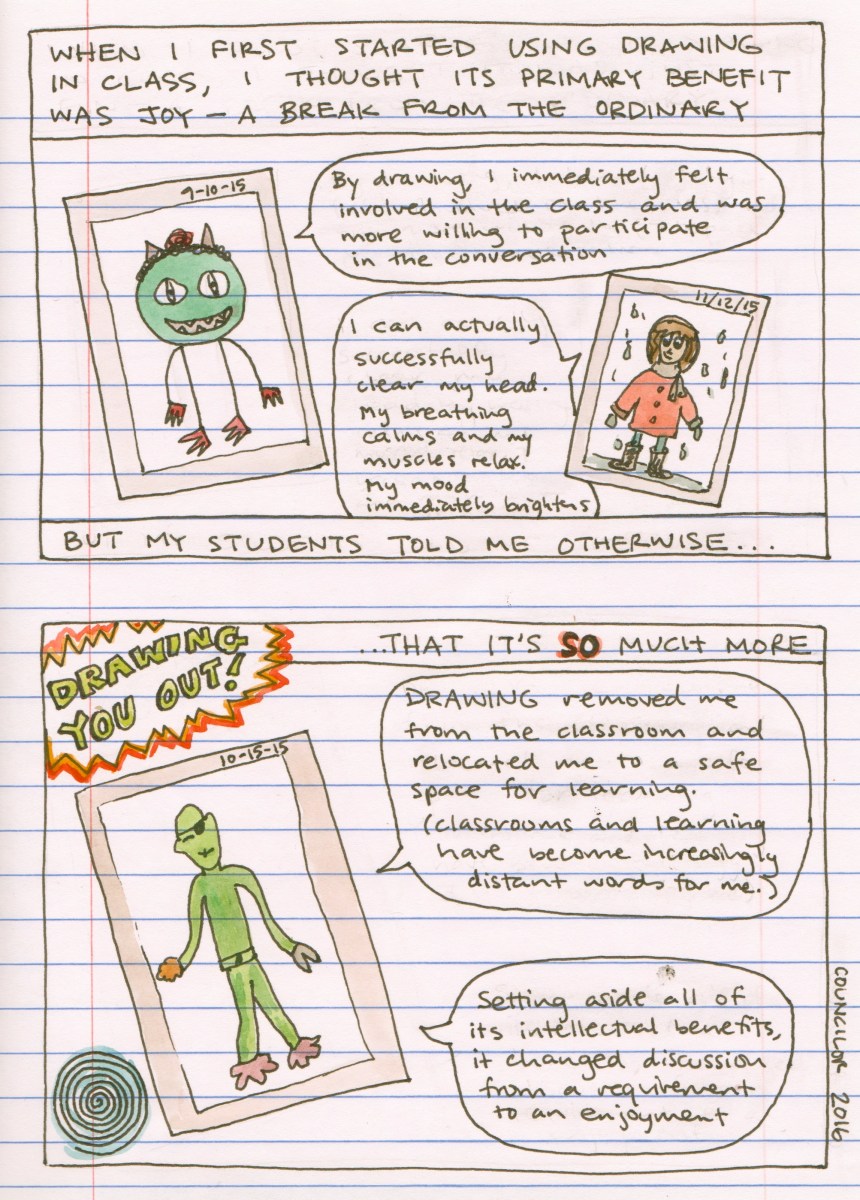 WHEN I FIRST STARTED USING DRAWING
IN CLASS, I THOUGHT ITS PRIMARY BENEFIT
WAS JOY – A BREAK FROM THE ORDINARY
9-10-15
By drawing, I immediately felt
involved in the class and was
more willing to participate
in the conversation
11/12/15
I can actually
successfully
clear my head.
My breathing
calms and my
muscles relax.
My mood
immediately brightens
BUT MY STUDENTS TOLD ME OTHERWISE....
DRAWING
YOU OUT!
...THAT IT'S SO MUCH MORE
10-15-15
DRAWING removed me
from the classroom and
relocated me to a safe
space for learning.
(classrooms and learning
have become increasingly
distant words for me.)
Setting aside all of
its intellectual benefits,
it changed discussion
from a requirement
to an enjoyment
COUNCILOR 2016